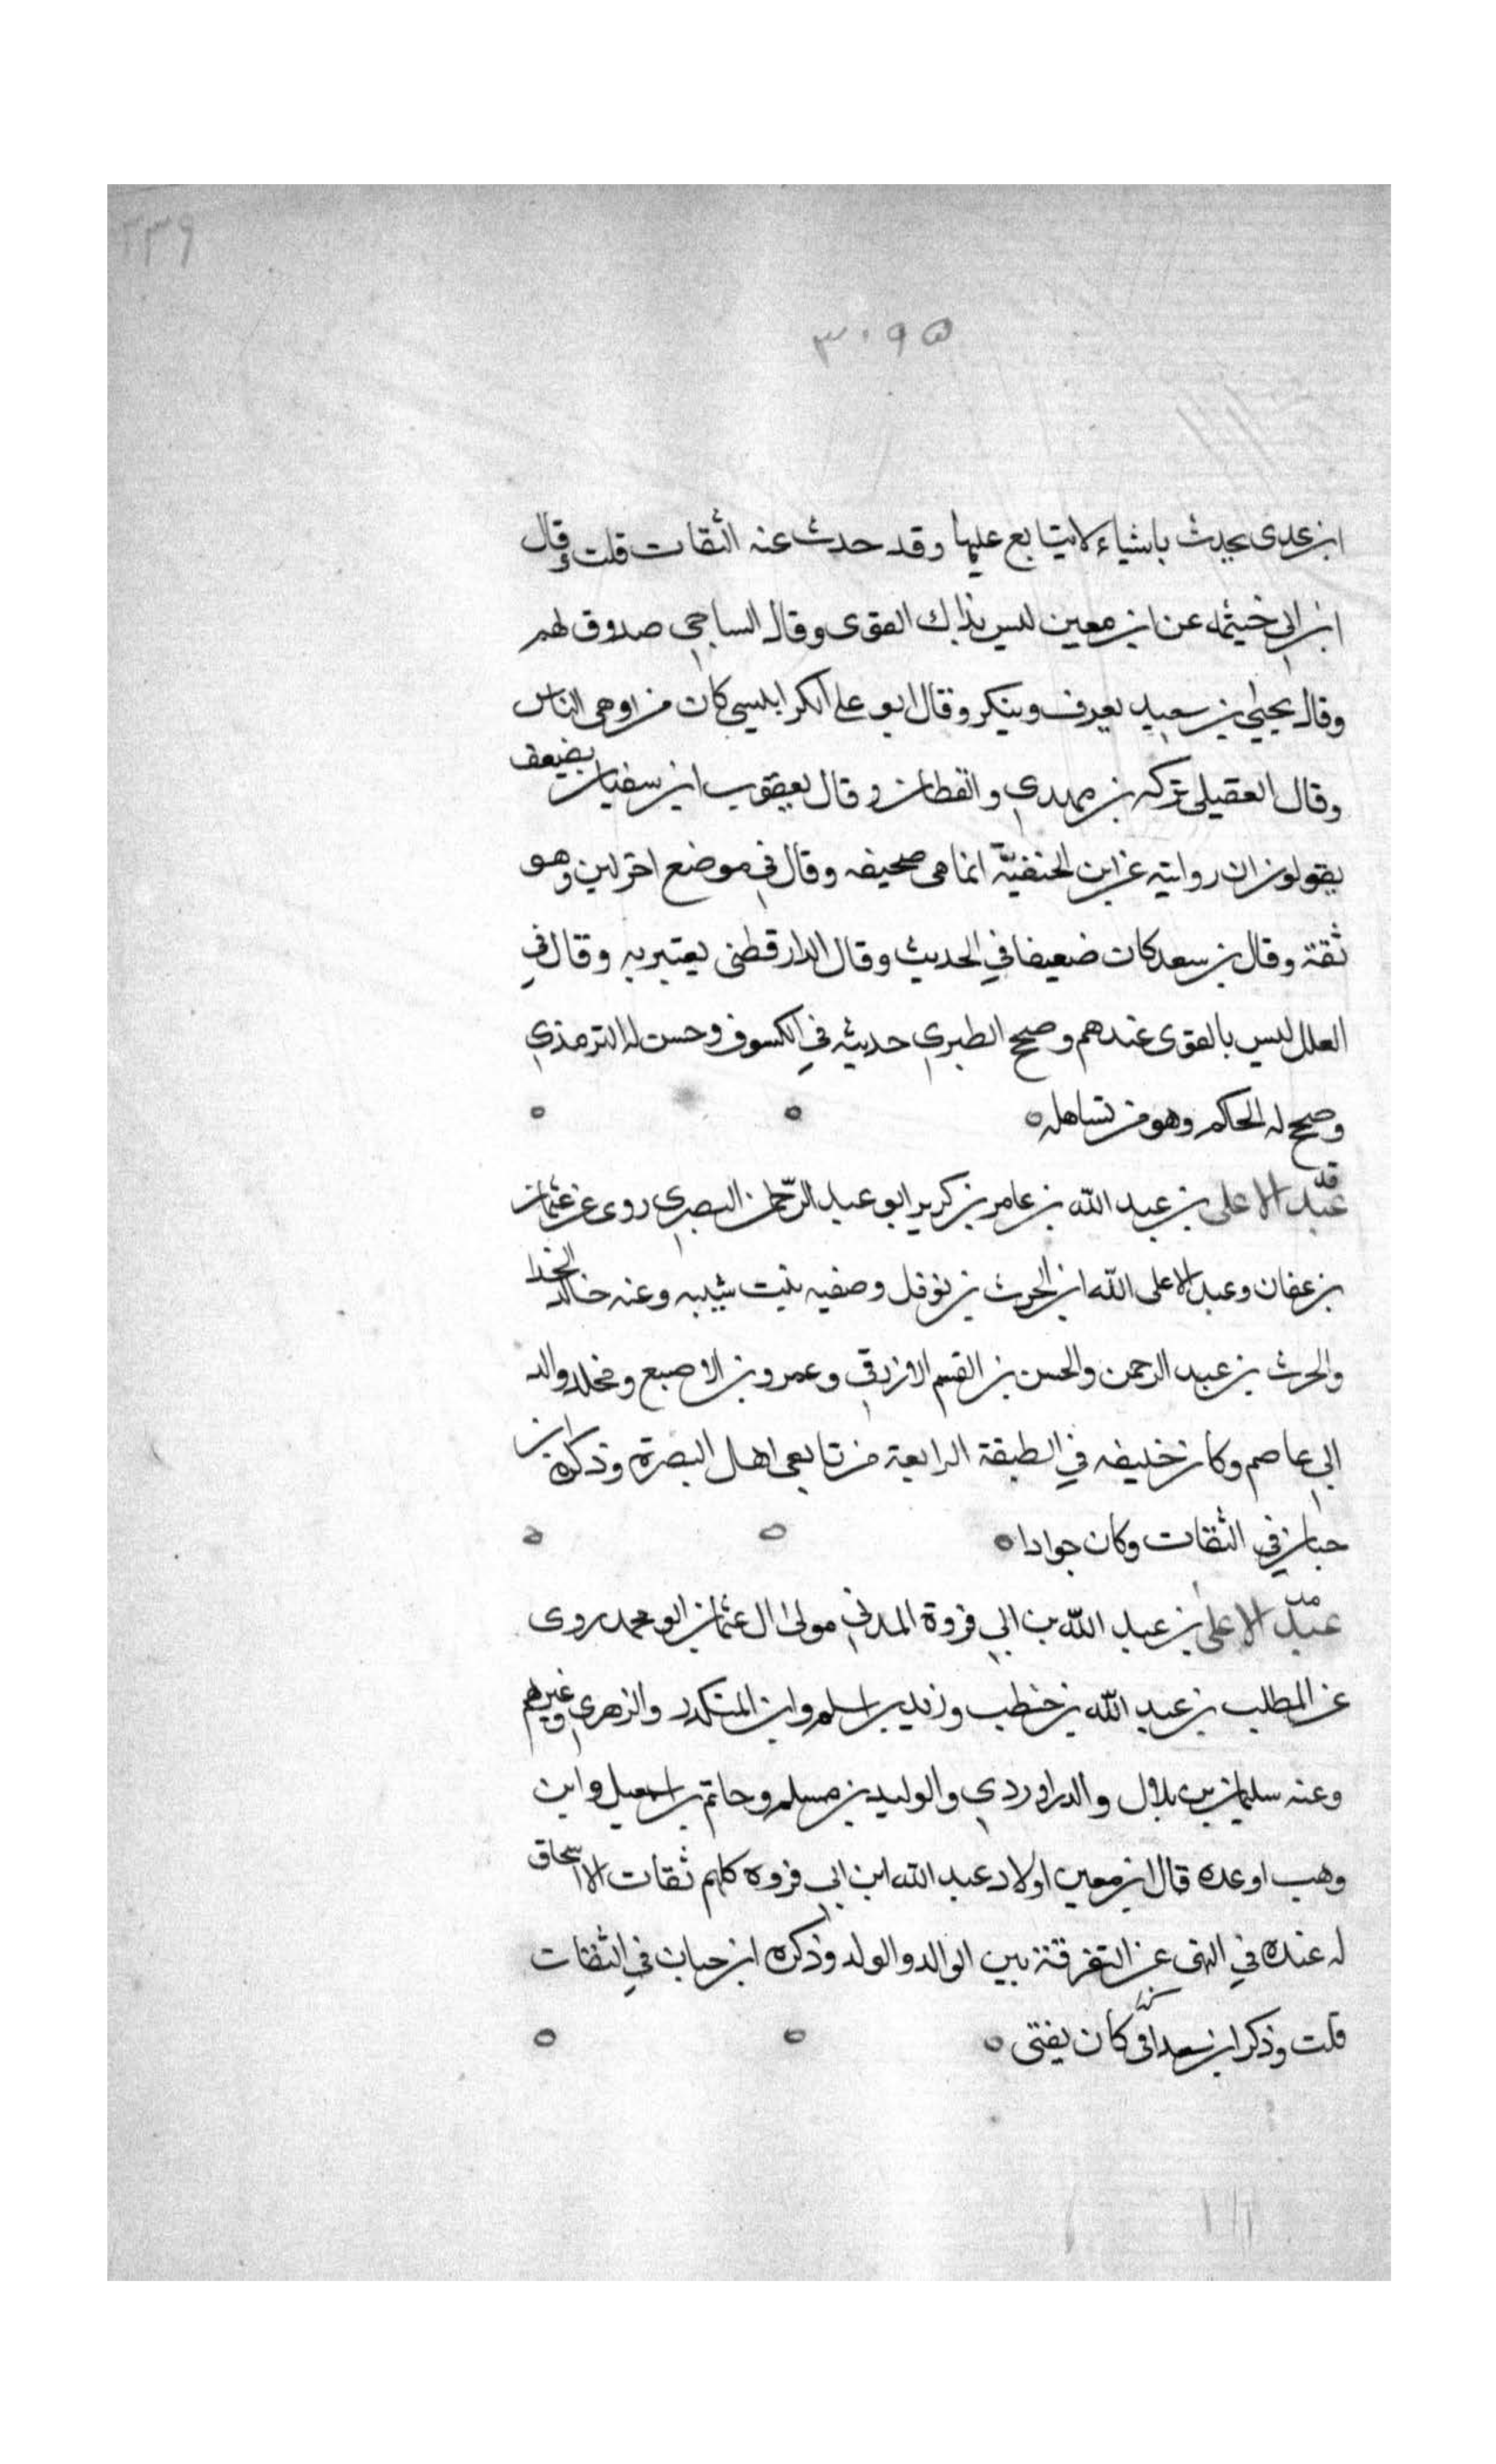 ٢٣٩
٣٠٩٥
ابن عدى يحدث باشياء لايتابع عليها وقد حدث عنه الثقات قلت وقال
ابن ابي خيثمه عن ابن معين ليس بذاك القوى وقال الساجي صدوق لهم
وقال يحيى بن سعيد يعرف وينكر وقال ابو على الكرابليسى كان من اوهى الناس
وقال العقيلى تركه بن مهدي والقطان وقال يعقوب ابن سفيان يضعف
يقولون ان روايته عن ابن الحنفيّة انما هى صحيفه وقال في موضع اخر لين وهو
ثقة وقال بن سعد كان ضعيفا في الحديث وقال الدارقطنى يعتبر به وقال في
العلل ليس بالقوى عندهم وصحح الطبري حديثه في الكسوف وحسن له الترمذي
وصحح له الحاكم وهو من تساهله
قد
عبد الاعلى بن عبد الله بن عامر بن كريز ابو عبد الرّحمن البصري روى عن عثمان
بن عفان وعبد الاعلى الله ابن الحرث بن نوفل وصفيه بنت شيبه وعنه خالد الحذا
والحرث بن عبد الرحمن والحسن بن القسم الازرقي وعمرو بن الاصبع ومخلد والد
ابي عاصم وكان خليفه في الطبقة الرابعة من تابعى اهل البصرة وذكره ابن
حبان في الثقات وكان جوادا
مد
عبد الاعلى بن عبد الله بن ابي فروة المدني مولى ال عثمان ابو محمد روى
عن المطلب بن عبد الله بن خطب وزيد بن اسلم وابن المنكدر والزهري وغيرهم
وعنه سليمان بن بلال والدراوردي والوليد بن مسلم وحاتم بن اسمعيل وابن
وهب اوعده قال ابن معين اولاد عبد الله ابن ابي فروه كلهم ثقات الا اسحاق
له عنده في النهى عن التفرقة بين الوالد والولد وذكره ابن حبان في الثقات
قلت وذكر ابن سعد كان يفتى